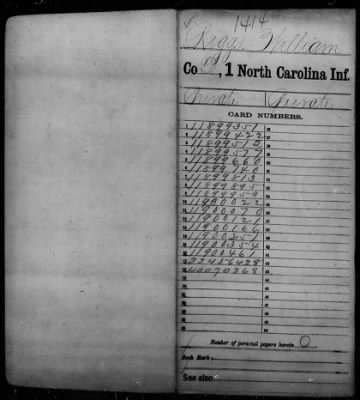 1414
Riggs William
Co. , 1 North Carolina Inf.
Private Private
CARD NUMBERS.
11899351
11899422
11899510
11899577
11899660
11899740
11899813
11899895
11899959
11900022
11900070
11900121
11900166
11900257
11900354
11900461
22456428
40070268
Number of personal papers herein 0
Book Mark:
See also